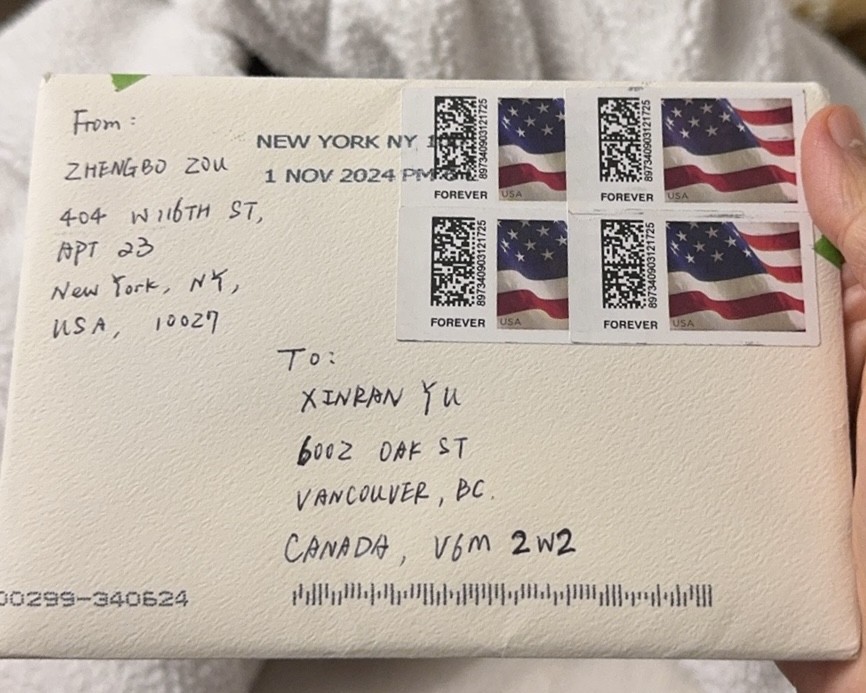 From:
ZHENGBO ZOU
404 W 116TH ST,
APT 23
New York, NY,
USA, 10027
NEW YORK NY
1 NOV 2024 PM
8973409031217​25
FOREVER
USA
8973409031217​25
FOREVER
USA
8973409031217​25
FOREVER
USA
8973409031217​25
FOREVER
USA
To:
XINRAN YU
6002 OAK ST
VANCOUVER, BC.
CANADA, V6M 2W2
00299-340624